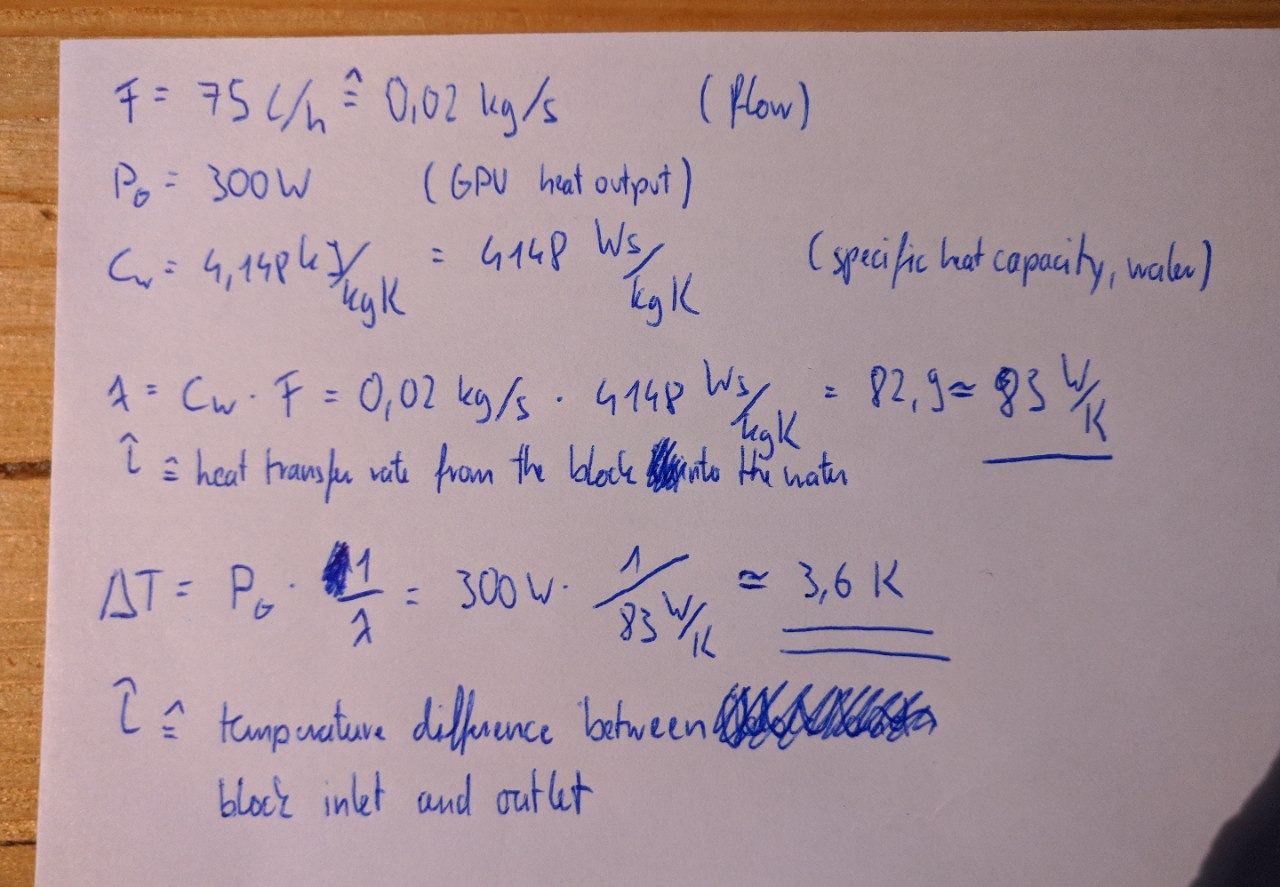 F = 75 l/h ≙ 0,02 kg/s (flow)
P_G = 300W (GPU heat output)
C_w = 4,148 kJ/kgK = 4148 Ws/kgK (specific heat capacity, water)
λ = C_w · F = 0,02 kg/s · 4148 Ws/kgK = 82,9 ≃ 83 W/K
≙ heat transfer rate from the block into the water
ΔT = P_G · 1/λ = 300W · 1/83 W/K ≃ 3,6 K
≙ temperature difference between
block inlet and outlet